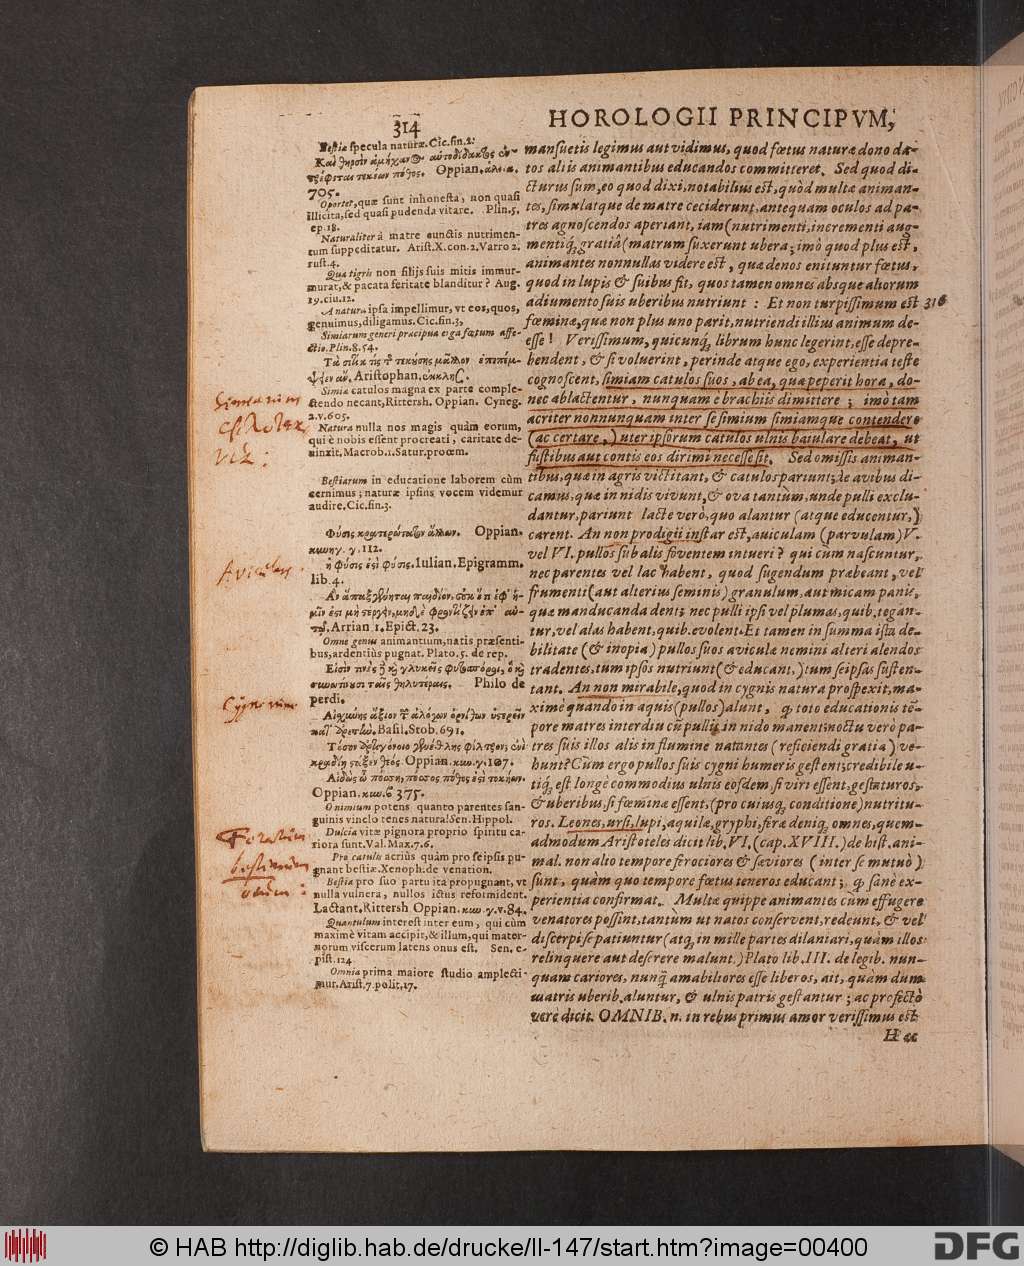 314
HOROLOGII PRINCIPVM,
Bestiæ specula naturæ. Cic. fin. 2.
Oppian. ἁλιευ. α.
705.
Oportet, quæ sunt inhonesta, non quasi
illicita, sed quasi pudenda vitare. Plin. 5.
ep. 18.
Naturaliter à matre cunctis nutrimen-
tum suppeditatur. Arist. X. con. 2. Varro 2.
rust. 4.
Quæ tigris non filijs suis mitis immur-
murat, & pacata feritate blanditur? Aug.
19. ciu. 12.
A natura ipsa impellimur, vt eos, quos,
genuimus, diligamus. Cic. fin. 3.
Simiarum generi præcipua erga fœtum affe-
ctio. Plin. 8. 54.
Aristophan.
Simia catulos magna ex parte comple-
ctendo necant, Rittersh. Oppian. Cyneg.
2. v. 605.
Natura nulla nos magis quàm eorum,
qui è nobis essent procreati, caritate de-
uinxit, Macrob. 1. Satur. proœm.
Bestiarum in educatione laborem cùm
cernimus; naturæ ipsius vocem videmur
audire. Cic. fin. 3.
Φύσις κρατερώτατον ἄλλων. Oppian.
κυνηγ. γ. 112.
ἡ φύσις ἐστὶ φύσις. Iulian. Epigramm.
lib. 4.
Arrian. 1. Epict. 23.
Omne genus animantium, natis præsenti-
bus, ardentiùs pugnat. Plato. 5. de rep.
Philo de
perdi.
Basil. Stob. 691.
Oppian. κυν. γ. 107.
Oppian. κυν. 6 375.
O nimium potens quanto parentes san-
guinis vinclo tenes natura! Sen. Hippol.
Dulcia vitæ pignora proprio spiritu ca-
riora sunt. Val. Max. 7. 6.
Pro catulis acriùs quàm pro seipsis pu-
gnant bestiæ. Xenoph. de venation.
Bestiæ pro suo partu ita propugnant, vt
nulla vulnera, nullos ictus reformident.
Lactant. Rittersh. Oppian. κυν. γ. v. 84.
Quantulum interest inter eum, qui cùm
maximè vitam accipit, & illum, qui mater-
norum viscerum latens onus est. Sen. e-
pist. 124
Omnia prima maiore studio amplecti-
mur. Arist. 7. polit. 17.
mansuetis legimus aut vidimus, quod fœtus naturæ dono da-
tos aliis animantibus educandos committeret. Sed quod di-
cturus sum, eo quod dixi, notabilius est, quòd multæ animan-
tes, simulatque de matre ceciderunt, antequam oculos ad pa-
tres agnoscendos aperiant, iam (nutrimenti, incrementi aug-
mentiq́; gratiâ (matrum suxerunt ubera; imò quod plus est,
animantes nonnullas videre est, quæ denos enituntur fœtus,
quod in lupis & suibus fit, quos tamen omnes absque aliorum
adiumento suis uberibus nutriunt: Et non turpissimum est 316
fœminæ, quæ non plus uno parit, nutriendi illius animum de-
esse! Verissimum, quicunq́; librum hunc legerint, esse depre-
hendent, & si voluerint, perinde atque ego, experientia teste
cognoscent, simiam catulos suos, ab ea, quæ peperit hora, do-
nec ablactentur, nunquam è brachiis dimittere; imò tam
acriter nonnunquam inter se simium simiamque contendere
(ac certare,) uter ipsorum catulos ulnis baiulare debeat, ut
fustibus aut contis eos dirimi necesse sit. Sed omissis animan-
tibus, quæ in agris victitant, & catulos pariunt; de avibus di-
camus, quæ in nidis vivunt, & ova tantùm, unde pulli exclu-
dantur, pariunt lacte verò, quo alantur (atque educentur,)
carent. An non prodigii instar est, aviculam (parvulam) V.
vel VI. pullos sub alis foventem intueri? qui cum nascuntur,
nec parentes vel lac habent, quod sugendum præbeant, vel
frumenti (aut alterius seminis) granulum, aut micam panis,
quæ manducanda dent; nec pulli ipsi vel plumas, quib. tegan-
tur, vel alas habent, quib. evolent. Et tamen in summa ista de-
bilitate (& inopia) pullos suos aviculæ nemini alteri alendos
tradentes, tum ipsos nutriunt (& educant,) tum seipsas susten-
tant. An non mirabile, quod in cygnis natura prospexit, ma-
ximè quando in aquis (pullos) alunt, ꝙ toto educationis tẽ-
pore matres interdiu cũ pullis in nido manent; noctu verò pa-
tres suis illos alis in flumine natantes (reficiendi gratia) ve-
hunt? Cùm ergo pullos suis cygni humeris gestent; credibile u-
tiq́; est longè commodius ulnis eosdem, si viri essent, gestaturos,
& uberibus, si fœminæ essent, (pro cuiusq́; conditione) nutritu-
ros. Leones, ursi, lupi, aquilæ, gryphi, feræ deniq́; omnes, quem-
admodum Aristoteles dicit lib. VI. (cap. XVIII.) de hist. ani-
mal. non alio tempore ferociores & sæviores (inter se mutuò)
sunt, quàm quo tempore fœtus teneros educant; ꝙ sanè ex-
perientia confirmat. Multæ quippe animantes cùm effugere
venatores possint, tantum ut natos conservent, redeunt, & vel
discerpi se patiuntur (atq́; in mille partes dilaniari, quàm illos
relinquere aut deserere malunt.) Plato lib. III. de legib. nun-
quam cariores, nunq̃ amabiliores esse liberos, ait, quàm dum
matris uberib. aluntur, & ulnis patris gestantur; ac profectò
vere dicit. OMNIB. n. in rebus primus amor verissimus est
Hæc
© HAB http://diglib.hab.de/drucke/li-147/start.htm?image=00400
DFG